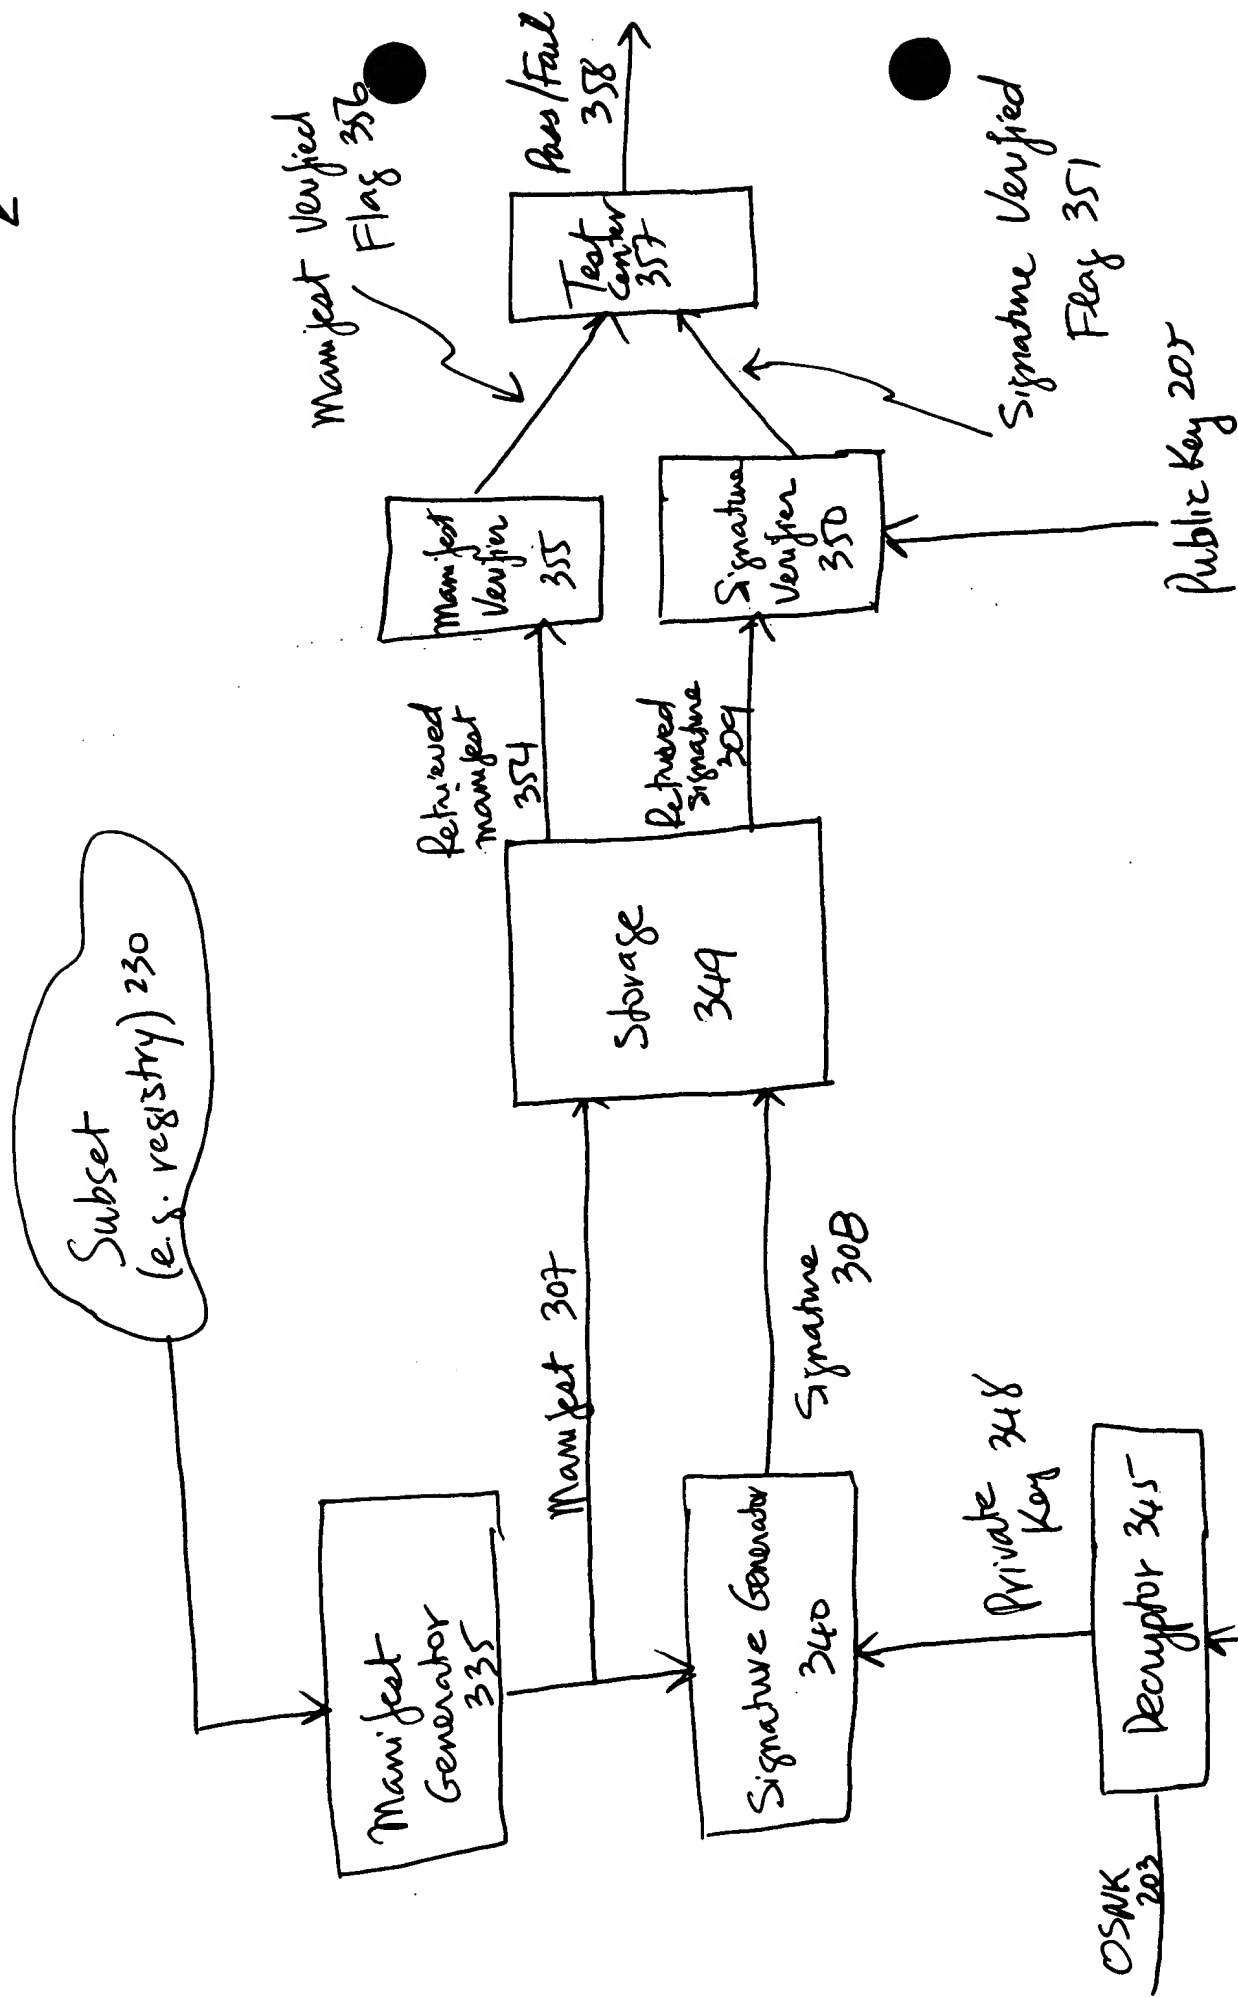 Subset
(e.g. registry) 230
Manifest
Generator
335
Manifest 307
Signature Generator
340
Signature
308
Private
Key 348
Decryptor 345
OSNK
203
Storage
349
Retrieved
manifest
354
Retrieved
signature
309
Manifest
Verifier
355
Signature
Verifier
350
Public Key 205
Manifest Verified
Flag 356
Signature Verified
Flag 351
Test
Center
357
Pass/Fail
358